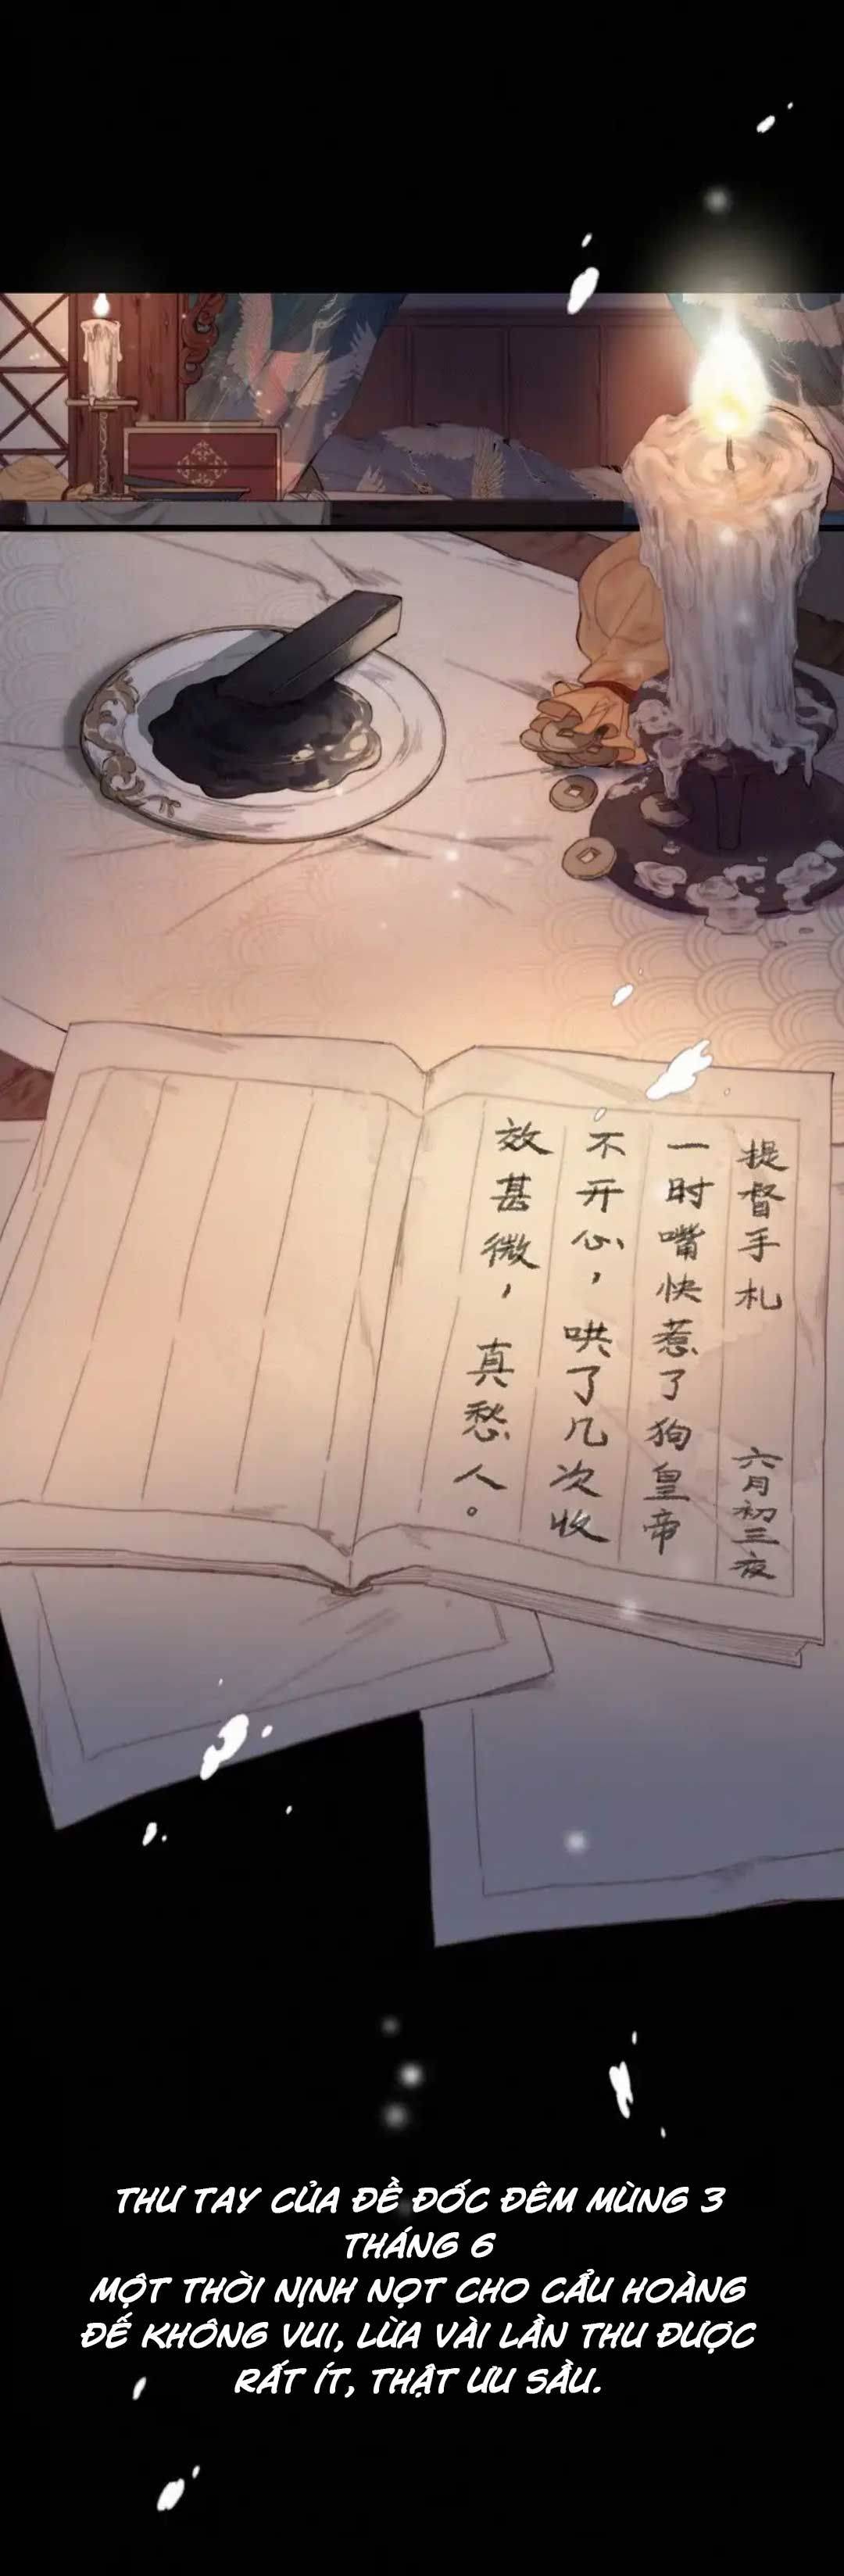 提督手札 六月初三夜
一时嘴快惹了狗皇帝
不开心，哄了几次收
效甚微，真愁人。
THƯ TAY CỦA ĐỀ ĐỐC ĐÊM MÙNG 3
THÁNG 6
MỘT THỜI NỊNH NỌT CHO CẨU HOÀNG
ĐẾ KHÔNG VUI, LỪA VÀI LẦN THU ĐƯỢC
RẤT ÍT, THẬT ƯU SẦU.